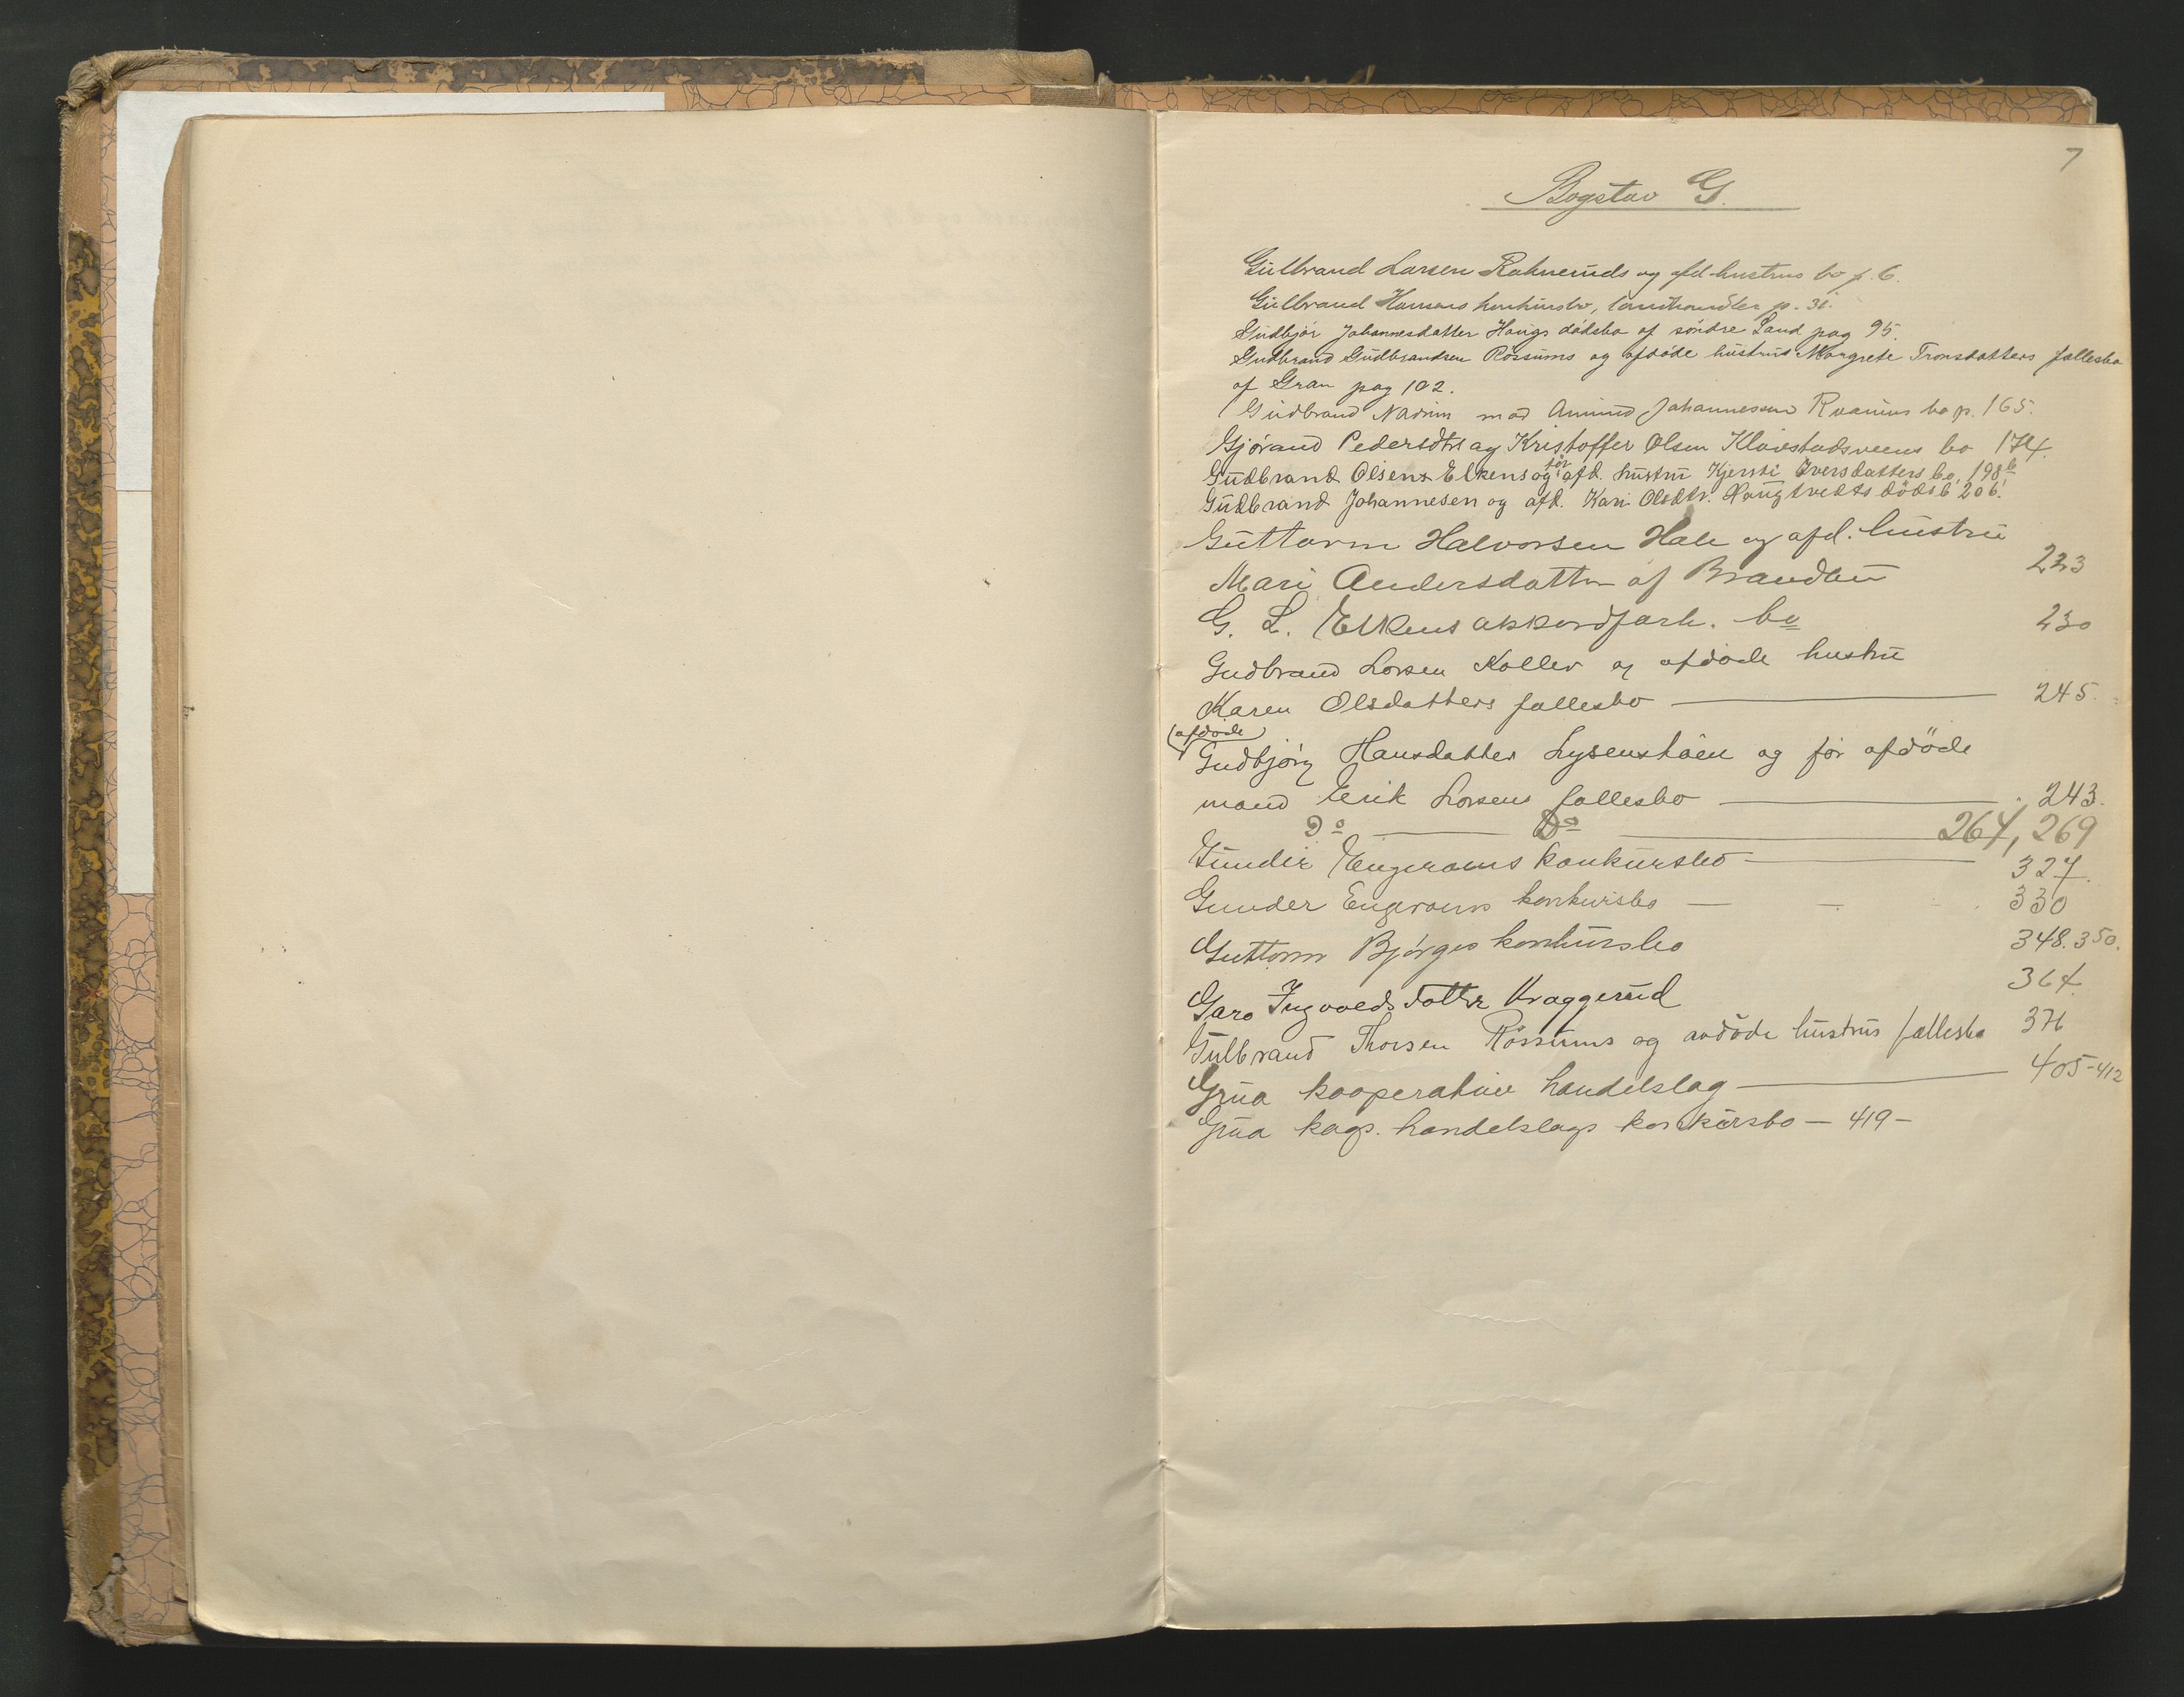 7
Bogstav G.
Gulbrand Larsen Rahneruds og afd. hustrus bo p. 6.
Gulbrand Hansens konkursbo, landhandler p. 31.
Gudbjør Johannesdatter Haugs dødsbo af søndre Land pag 95.
Gudbrand Gudbrandsen Røssums og afdøde hustrus Margrete Tronsdatters fællesbo
af Gran pag 102.
Gudbrand Nadrum mod Amund Johannessen Rvanums bo p. 165.
Gjørand Pedersdtrs og Kristoffer Olsen Klæstadsveens bo 174.
Gudbrand Olsens Elkens og før afd. hustru Kjersti Iversdatters bo. 198 b
Gudbrand Johannesen og afd. Kari Olsdtr. Haugtvedts dødsb 206.
Guttorm Halvorsen Hale og afd. hustru
Mari Andersdatter af Brandbu 223
G. L. Elkens akkordforh. bo 230
Gudbrand Larsen Koller og afdøde hustru
Karen Olsdatters fællesbo 245.
(afdøde)
Gudbjørg Hansdatter Lysenstøen og før afdøde
mand Erik Larsens fællesbo 243.
Do Do 264, 269
Gunder Engeraens konkursbo 327.
Gunder Engeraens konkursbo 330
Guttorm Bjørges konkursbo 348. 350.
Garo Ingvoldsdatter Kraggerud 364.
Gulbrand Thorsen Røssums og avdøde hustrus fællesbo 376
Grua kooperative handelslag 405-412
Grua kop. handelslags konkursbo — 419 —